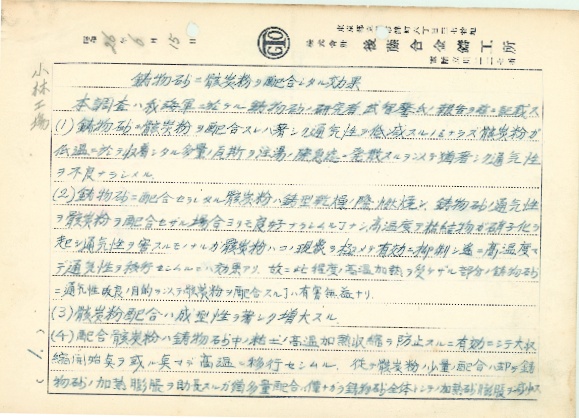 昭和 26年 6月 15日
GTO
株式会社 後藤合金鑄工所
小林工場
鋳物砂ニ骸炭粉ヲ配合シタル効果
本調査ハ我海軍ニ於ケル鋳物砂ノ研究者 武智 氏ノ報告ヲ 記載ス
(1) 鋳物砂ニ骸炭粉ヲ配合スレバ著シク通気性ヲ低減スルノミナラズ骸炭粉ガ
低温ニ於テ収着シタル含量ノ瓦斯ヲ注湯ノ際急 ニ発散スルヲ以テ 著シク通気性
ヲ不良ナラシム
(2) 鋳物砂ニ配合セラレタル骸炭粉ハ鋳型乾燥ノ際燃焼シ 鋳物砂ノ通気性
ヲ骸炭粉ヲ配合セザル場合ヨリモ良好ナラシム 高温度ヲ粘結物ガ硝子化ヲ
起シ通気性ヲ害スルモノナルガ骸炭粉ハコノ現象ヲ極メテ有効ニ抑制シ 高温度マ
デ通気性ヲ移行センムル効果アリ 故ニ此程度ノ高温加熱ヲ受ケザル部分ノ鋳物砂
ニ通気性改良ノ目的ヲ以テ骸炭粉ヲ配合スルハ有害無益ナリ
(3) 骸炭粉配合ハ成型性ヲ著シク増大スル
(4) 配合骸炭粉ハ鋳物砂中ノ粘土ノ高温加熱収縮ヲ防止スルニ有効ニシテ大収
縮開始点ヲ或ル点マデ高温ニ移行センムル 従テ骸炭粉小量ノ配合ハ却テ鋳
物砂ノ加熱膨脹ヲ助長スルガ 多量配合 鋳物砂全体トシテノ加熱膨脹ヲ減少ス
(1)